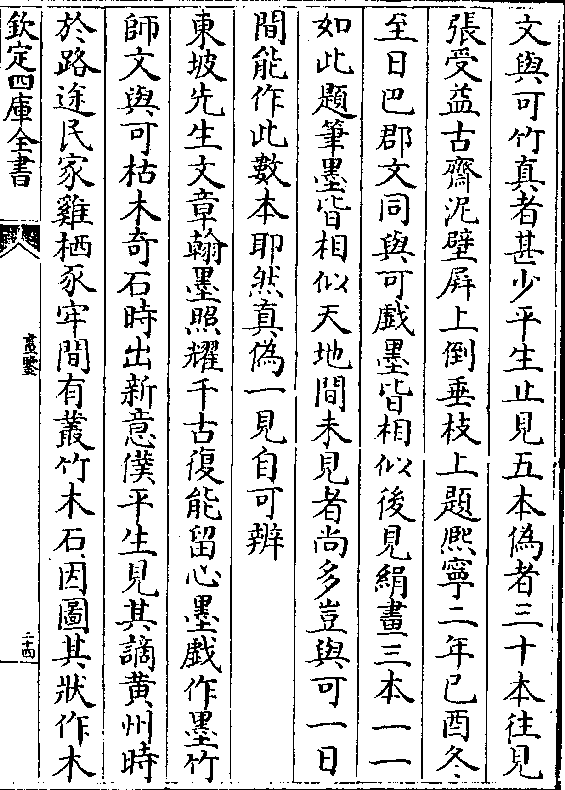 文與可竹真者甚少平生止見五本偽者三十本往見
張受益古齋泥壁屛上倒垂枝上題熈寧二年己酉冬
至日巴郡文同與可戲墨皆相似後見絹畫三本一一
如此題筆墨皆相似天地間未見者尚多豈與可一日
間能作此數本耶然真偽一見自可辨
東坡先生文章翰墨照耀千古復能留心墨戲作墨竹
師文與可枯木奇石時出新意僕平生見其謫黄州時
於路途民家雞栖豕牢間有叢竹木石因圖其狀作木
欽定四庫全書
畫鑒
二十四